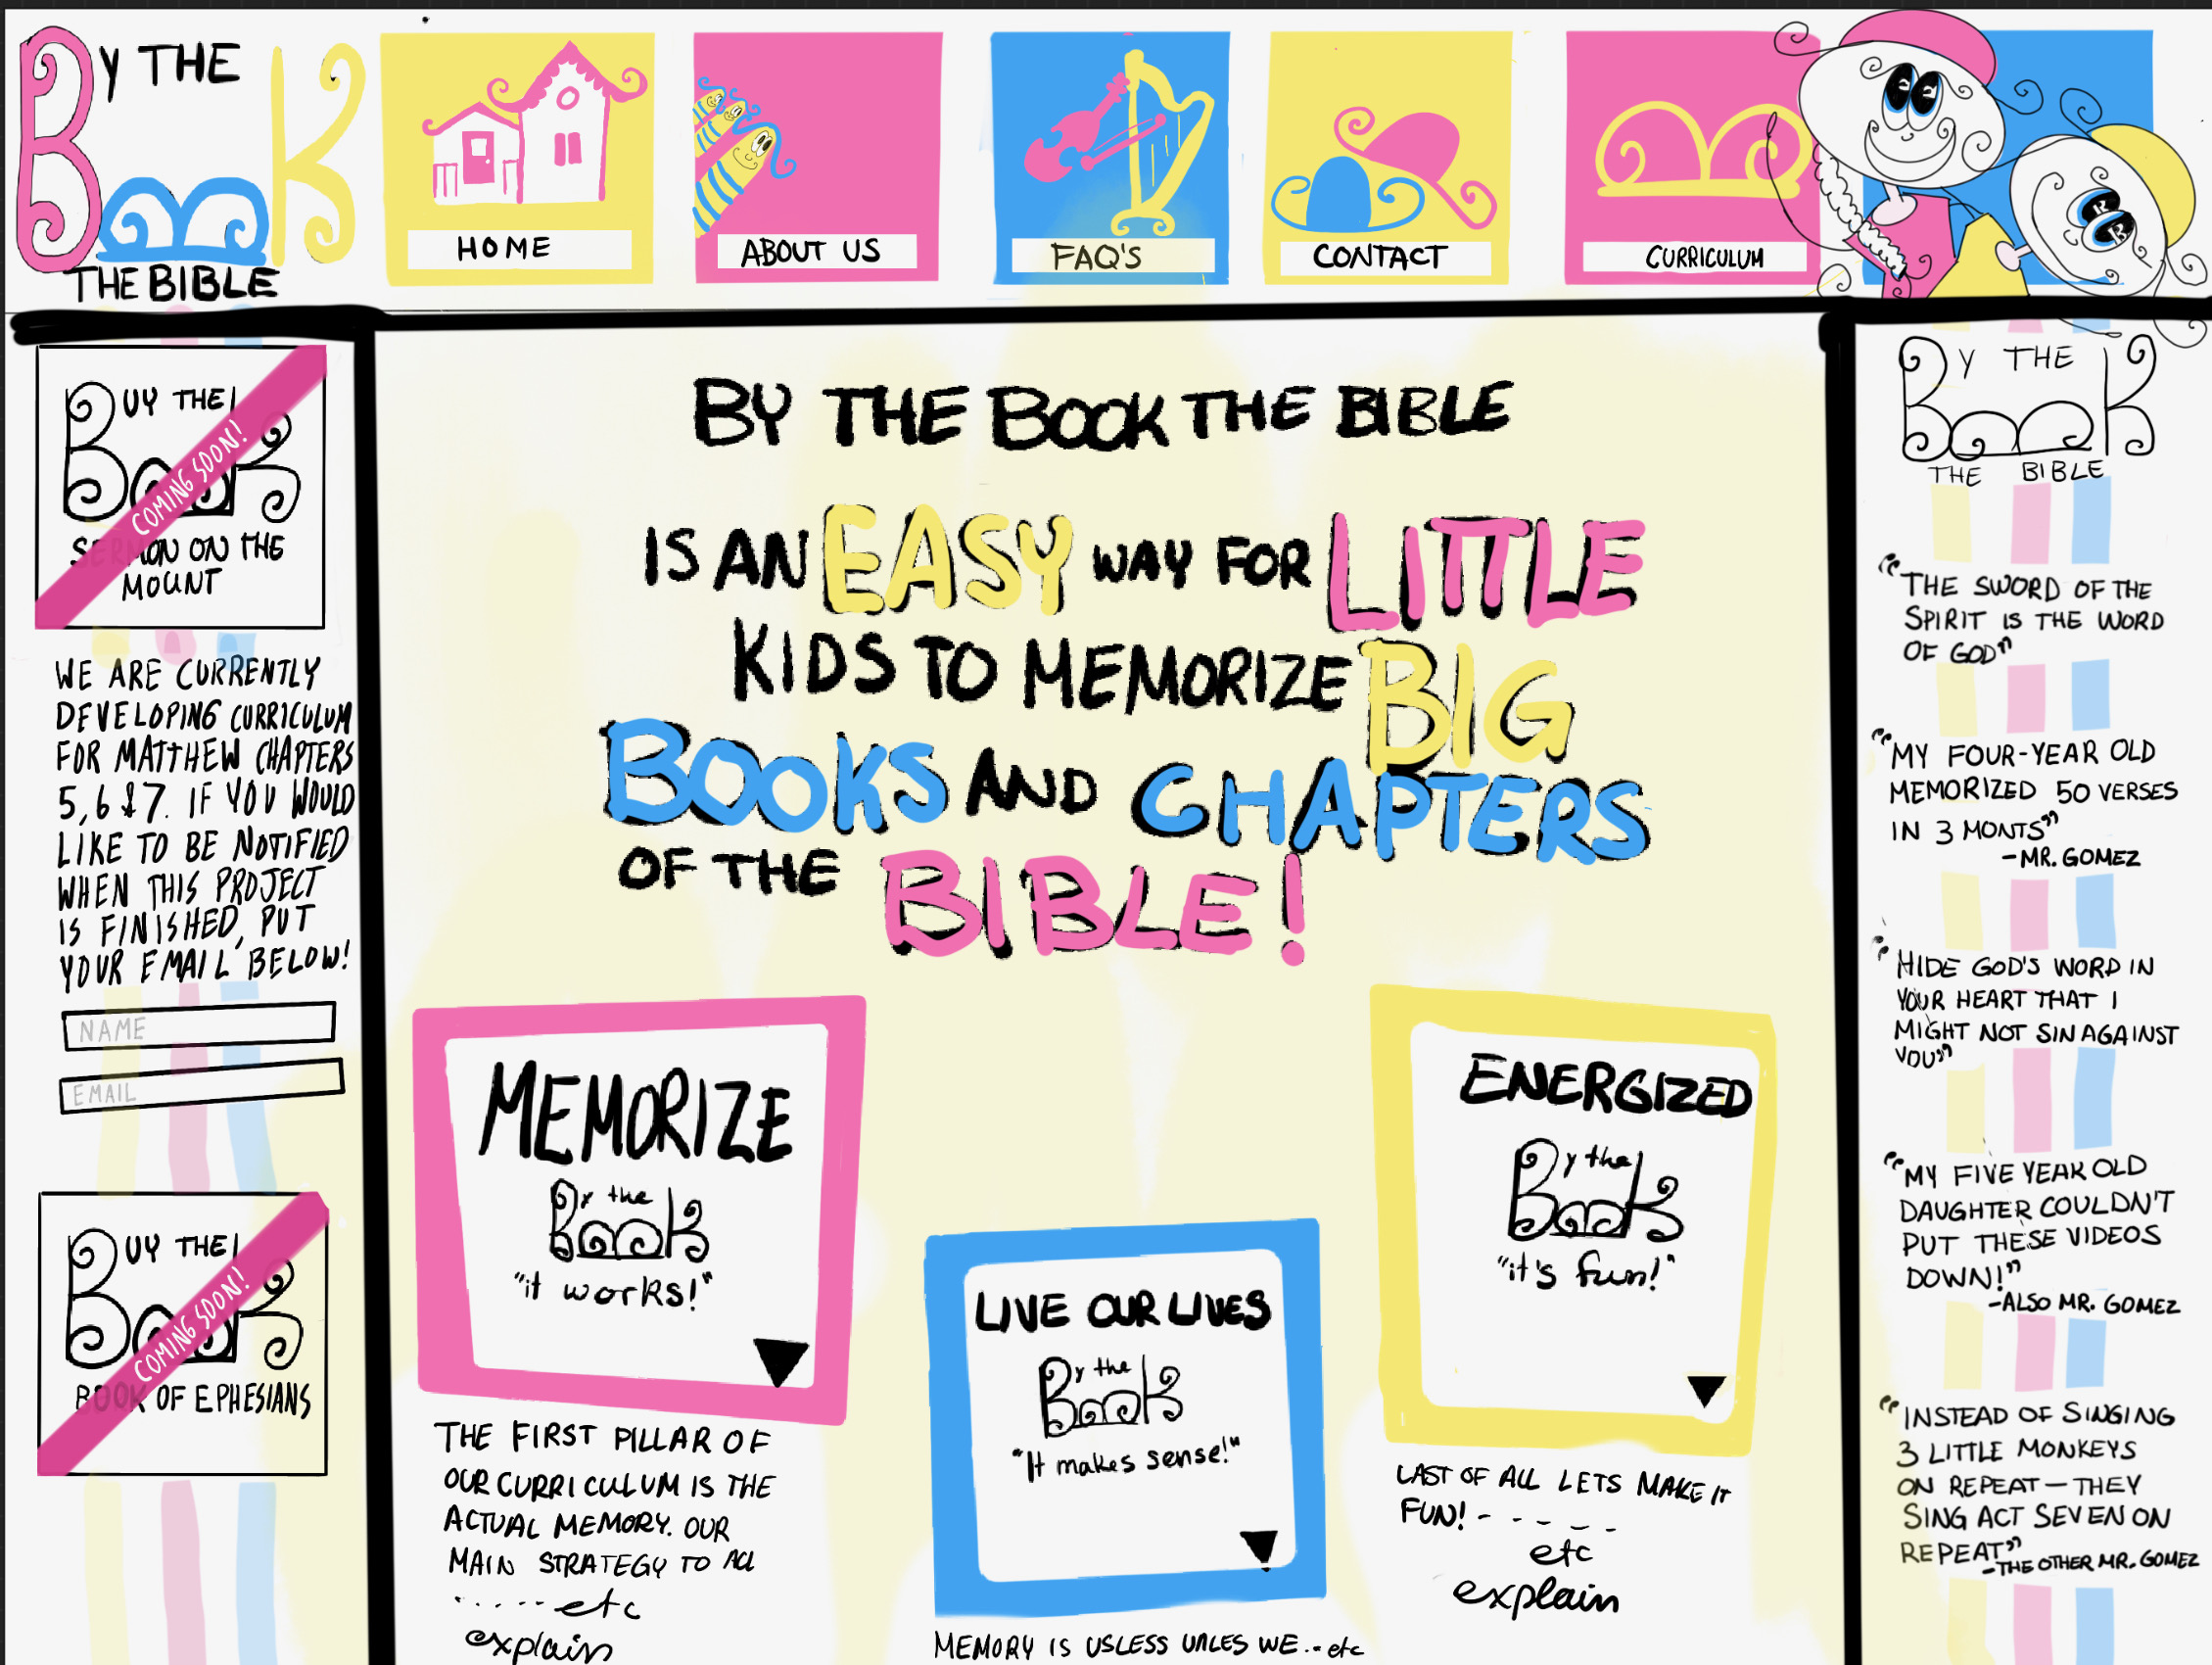 BY THE
BOOK
THE BIBLE
HOME
ABOUT US
FAQ'S
CONTACT
CURRICULUM
BUY THE
BOOK
COMING SOON!
SERMON ON THE
MOUNT
WE ARE CURRENTLY
DEVELOPING CURRICULUM
FOR MATTHEW CHAPTERS
5,6 & 7. IF YOU WOULD
LIKE TO BE NOTIFIED
WHEN THIS PROJECT
IS FINISHED, PUT
YOUR EMAIL BELOW!
NAME
EMAIL
BUY THE
BOOK
COMING SOON!
BOOK OF EPHESIANS
BY THE BOOK THE BIBLE
IS AN EASY WAY FOR LITTLE
KIDS TO MEMORIZE BIG
BOOKS AND CHAPTERS
OF THE BIBLE!
MEMORIZE
By the
Book
"it works!"
THE FIRST PILLAR OF
OUR CURRICULUM IS THE
ACTUAL MEMORY. OUR
MAIN STRATEGY TO ALL
.....etc
explain
LIVE OUR LIVES
By the
Book
"It makes sense!"
MEMORY IS USLESS UNLES WE...etc
ENERGIZED
By the
Book
"it's fun!"
LAST OF ALL LETS MAKE IT
FUN! - - - - -
etc
explain
BY THE
BOOK
THE BIBLE
"THE SWORD OF THE
SPIRIT IS THE WORD
OF GOD"
"MY FOUR-YEAR OLD
MEMORIZED 50 VERSES
IN 3 MONTS"
-MR. GOMEZ
"HIDE GOD'S WORD IN
YOUR HEART THAT I
MIGHT NOT SIN AGAINST
YOU"
"MY FIVE YEAR OLD
DAUGHTER COULDN'T
PUT THESE VIDEOS
DOWN!"
-ALSO MR. GOMEZ
"INSTEAD OF SINGING
3 LITTLE MONKEYS
ON REPEAT - THEY
SING ACT SEVEN ON
REPEAT"
-THE OTHER MR. GOMEZ